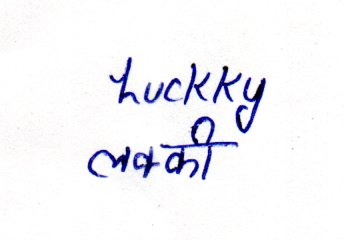 Luckky
लक्की